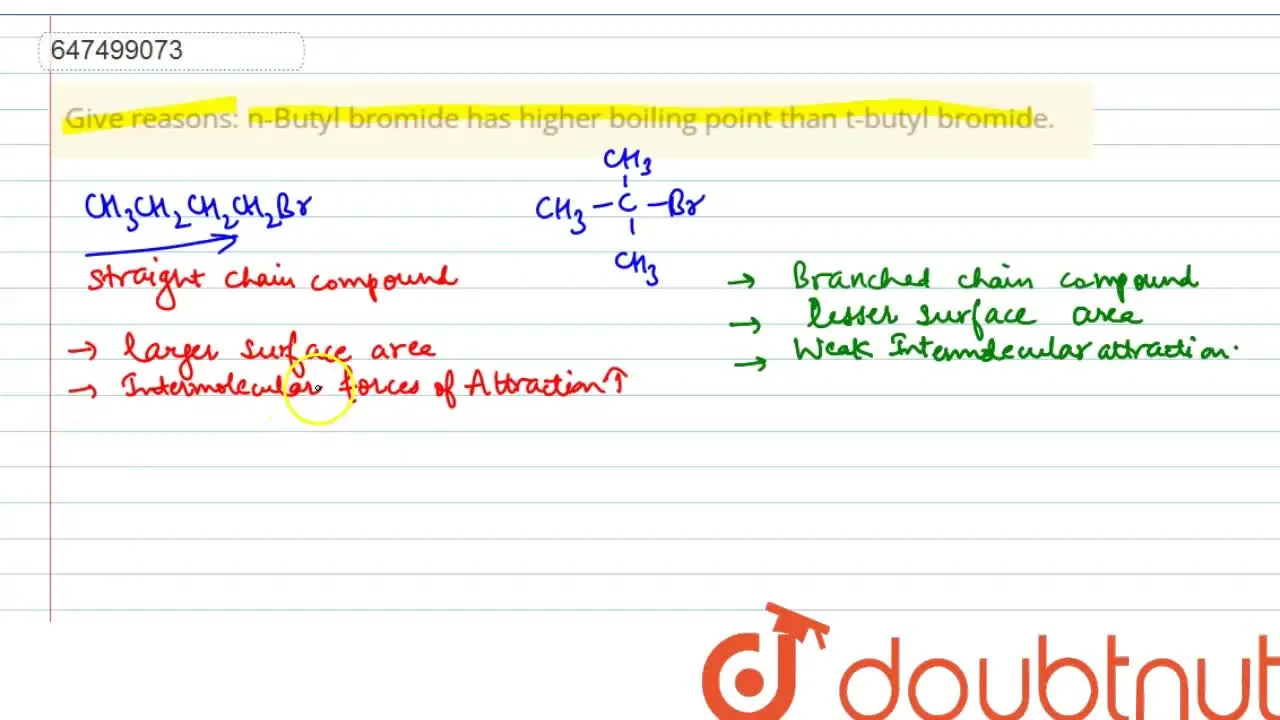 647499073
Give reasons: n-Butyl bromide has higher boiling point than t-butyl bromide.
CH3CH2CH2CH2Br
CH3
CH3 – C – Br
CH3
Straight chain compound
→ larger surface area
→ Intermolecular forces of Attraction ↑
→ Branched chain compound
→ lesser surface area
→ Weak Intermolecular attraction.
doubtnut